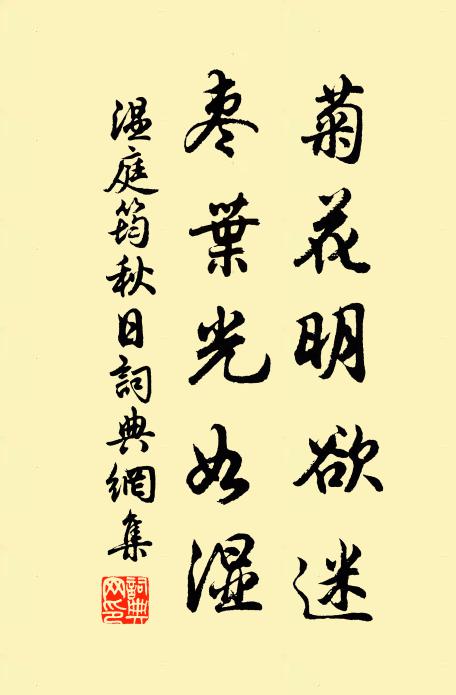 菊花明欲迷
枣葉光如湿
温庭筠秋日詞典網集
詞典網印